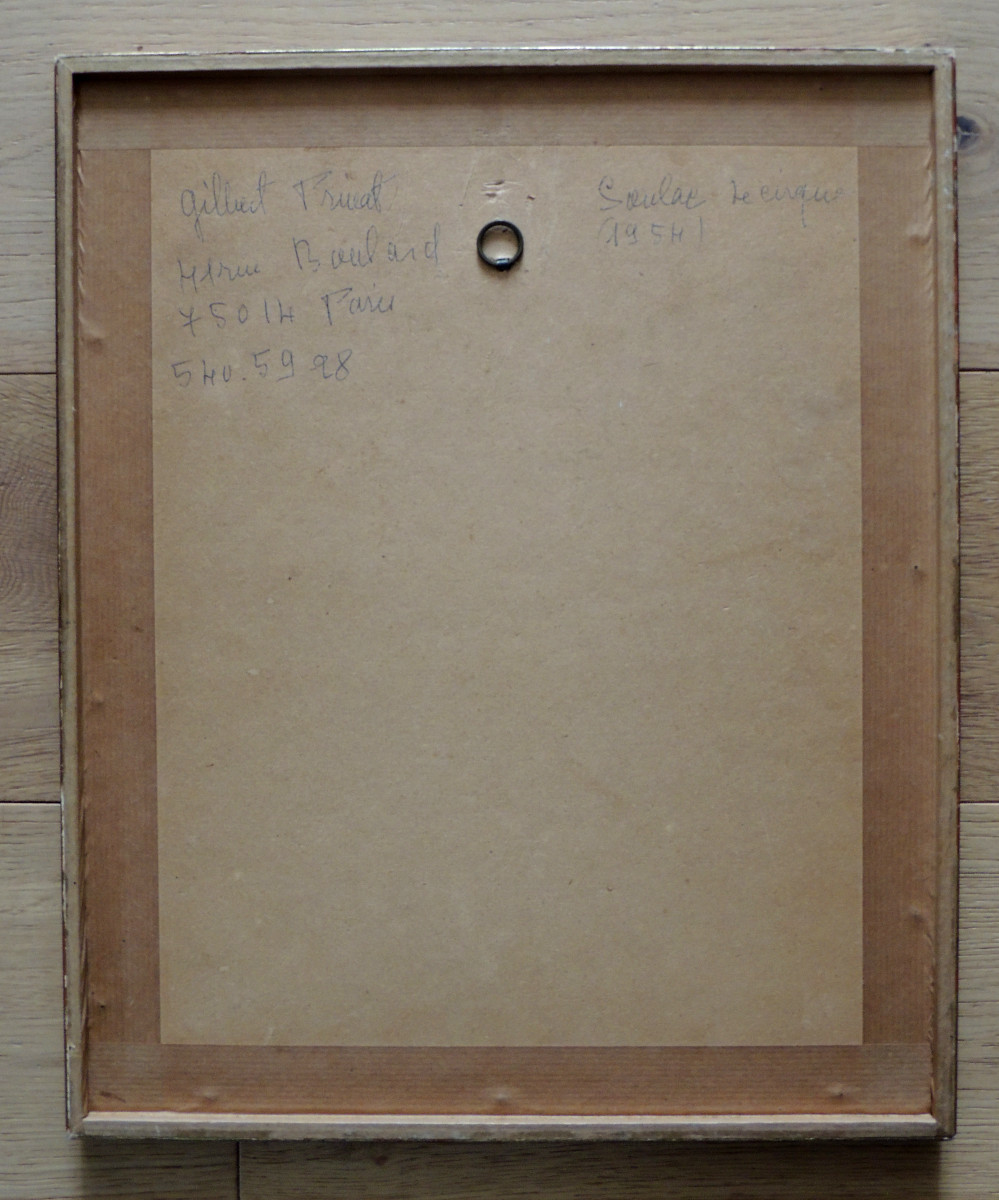 Gilbert Privat
41 rue Boulard
75014 Paris
540.59 28
Soulac Le cirque
(1954)